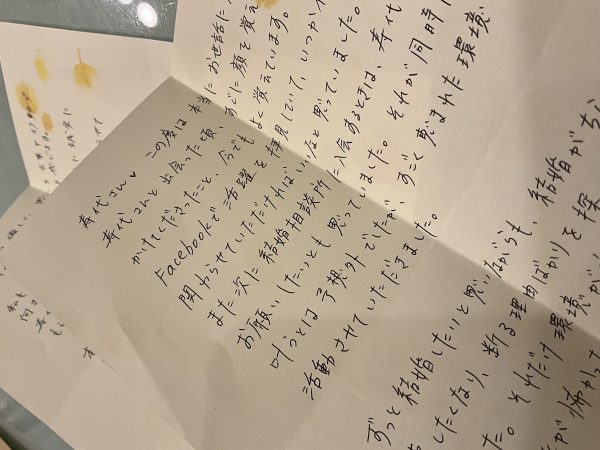 寿代さん、この度は本当にお世話に
寿代さんと出会った頃、すぐに顔を覚え
かけてくださったこと、今でもよく覚えています。
Facebookで活躍を拝見していて、いつか
関わらせていただければいいなと思っていました。
また次に結婚相談所に入会するときは、寿代
お願いしたいとも思っていました。それが同時
叶うとは予想外でしたが、すごく恵まれた環境
活動させていただきました。
ずっと結婚したいと思いながらも、結婚が
したくなり、断る理由ばかりを探
た。それだけ環境が
が怖かっ